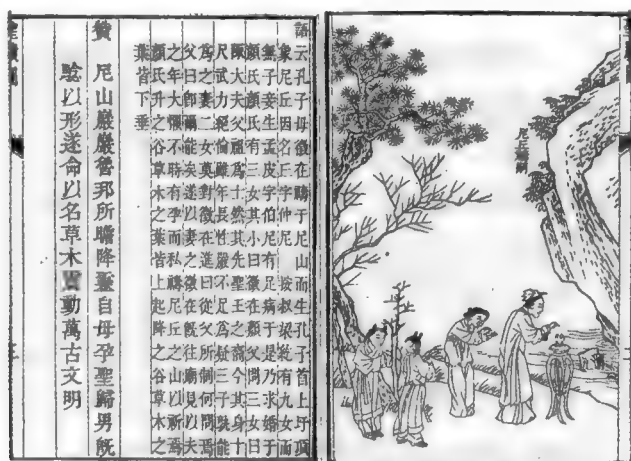 尼丘禱嗣
語云孔子母徵在禱于尼山而生孔子首上圩頂
象尼丘因名丘字仲尼 按叔梁紇有九女而
無子妾生孟皮字伯尼有足病于是乃求婚于
顏氏顏氏有三女其小曰徵在顏父問三女曰
陬大夫父祖爲士然其先聖王之裔今其身十
尺武力絕倫雖年長性嚴不足爲疑三子孰能
爲之妻二女莫對徵在進曰從父所制何問焉
父曰卽爾能矣遂以妻之徵在旣往廟見以夫
之年大懼不時有孕而私禱尼丘之山以祈焉
顏氏升之谷草木之葉皆上起降之谷草木之
葉皆下垂
贊 尼山巖巖魯邦所瞻降靈自母孕聖歸男旣
驗以形遂命以名草木震動萬古文明